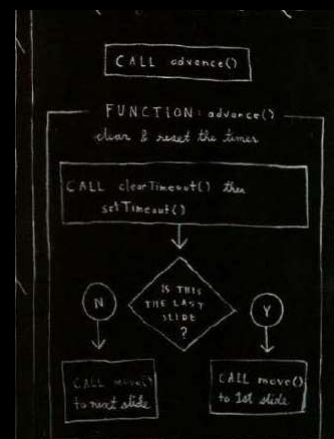 CALL advance()
FUNCTION: advance()
clear & reset the timer
CALL clearTimeout() then
setTimeout()
IS THIS
THE LAST
SLIDE
?
N
Y
CALL move()
to next slide
CALL move()
to 1st slide